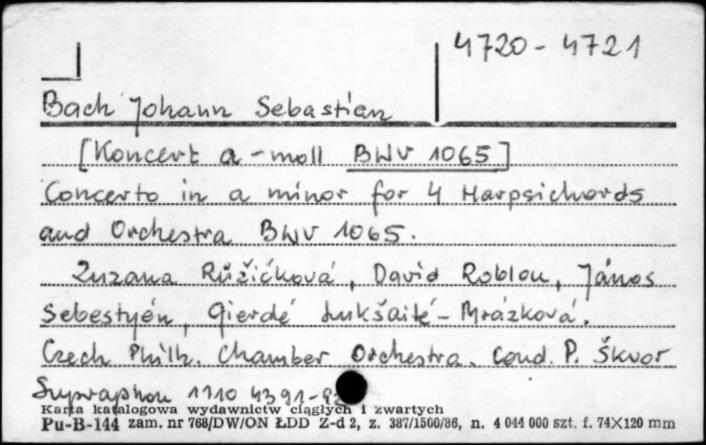 4720-4721
Bach Johann Sebastian
[Koncert a-moll BWV 1065]
Concerto in a minor for 4 Harpsichords
and Orchestra BWV 1065.
Zuzana Růžičková, David Roblou, János
Sebestyén, Gierdé Lukšaité-Mrázková.
Czech Philh. Chamber Orchestra. Cond. P. Škvor
Supraphon 1110 4391-92
Karta katalogowa wydawnictw ciągłych i zwartych
Pu-B-144 zam. nr 768/DW/ON ŁDD Z-d 2, z. 387/1500/86, n. 4 044 000 szt. f. 74×120 mm